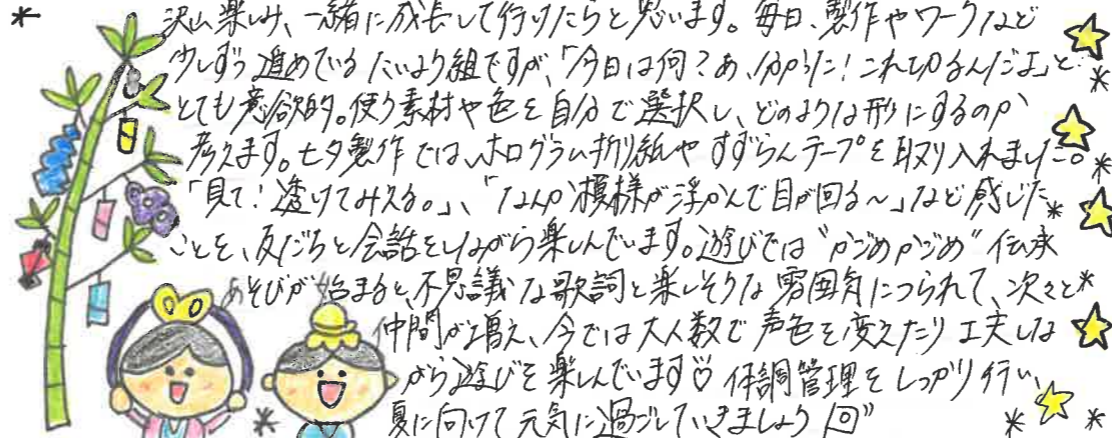 沢山楽しみ、一緒に成長して行けたらと思います。毎日、製作やワークなど
少しずつ進めているたいよう組ですが、「今日は何？あ、分かった！これでやるんだよ」と
とても意欲的。使う素材や色を自分で選択し、どのような形にするのか
考えます。七夕製作では、ホログラム折り紙やすずらんテープを取り入れました。
「見て！透けてみえる。」、「なんか模様が浮かんで目が回る～」など感じた
ことを、友だちと会話をしながら楽しんでいます。遊びでは"かごめかごめ"伝承
あそびが始まると、不思議な歌詞と楽しそうな雰囲気につられて、次々と
仲間が増え、今では大人数で声色を変えたり工夫しな
がら遊びを楽しんでいます♡ 体調管理をしっかり行い、
夏に向けて元気に過ごしていきましょう